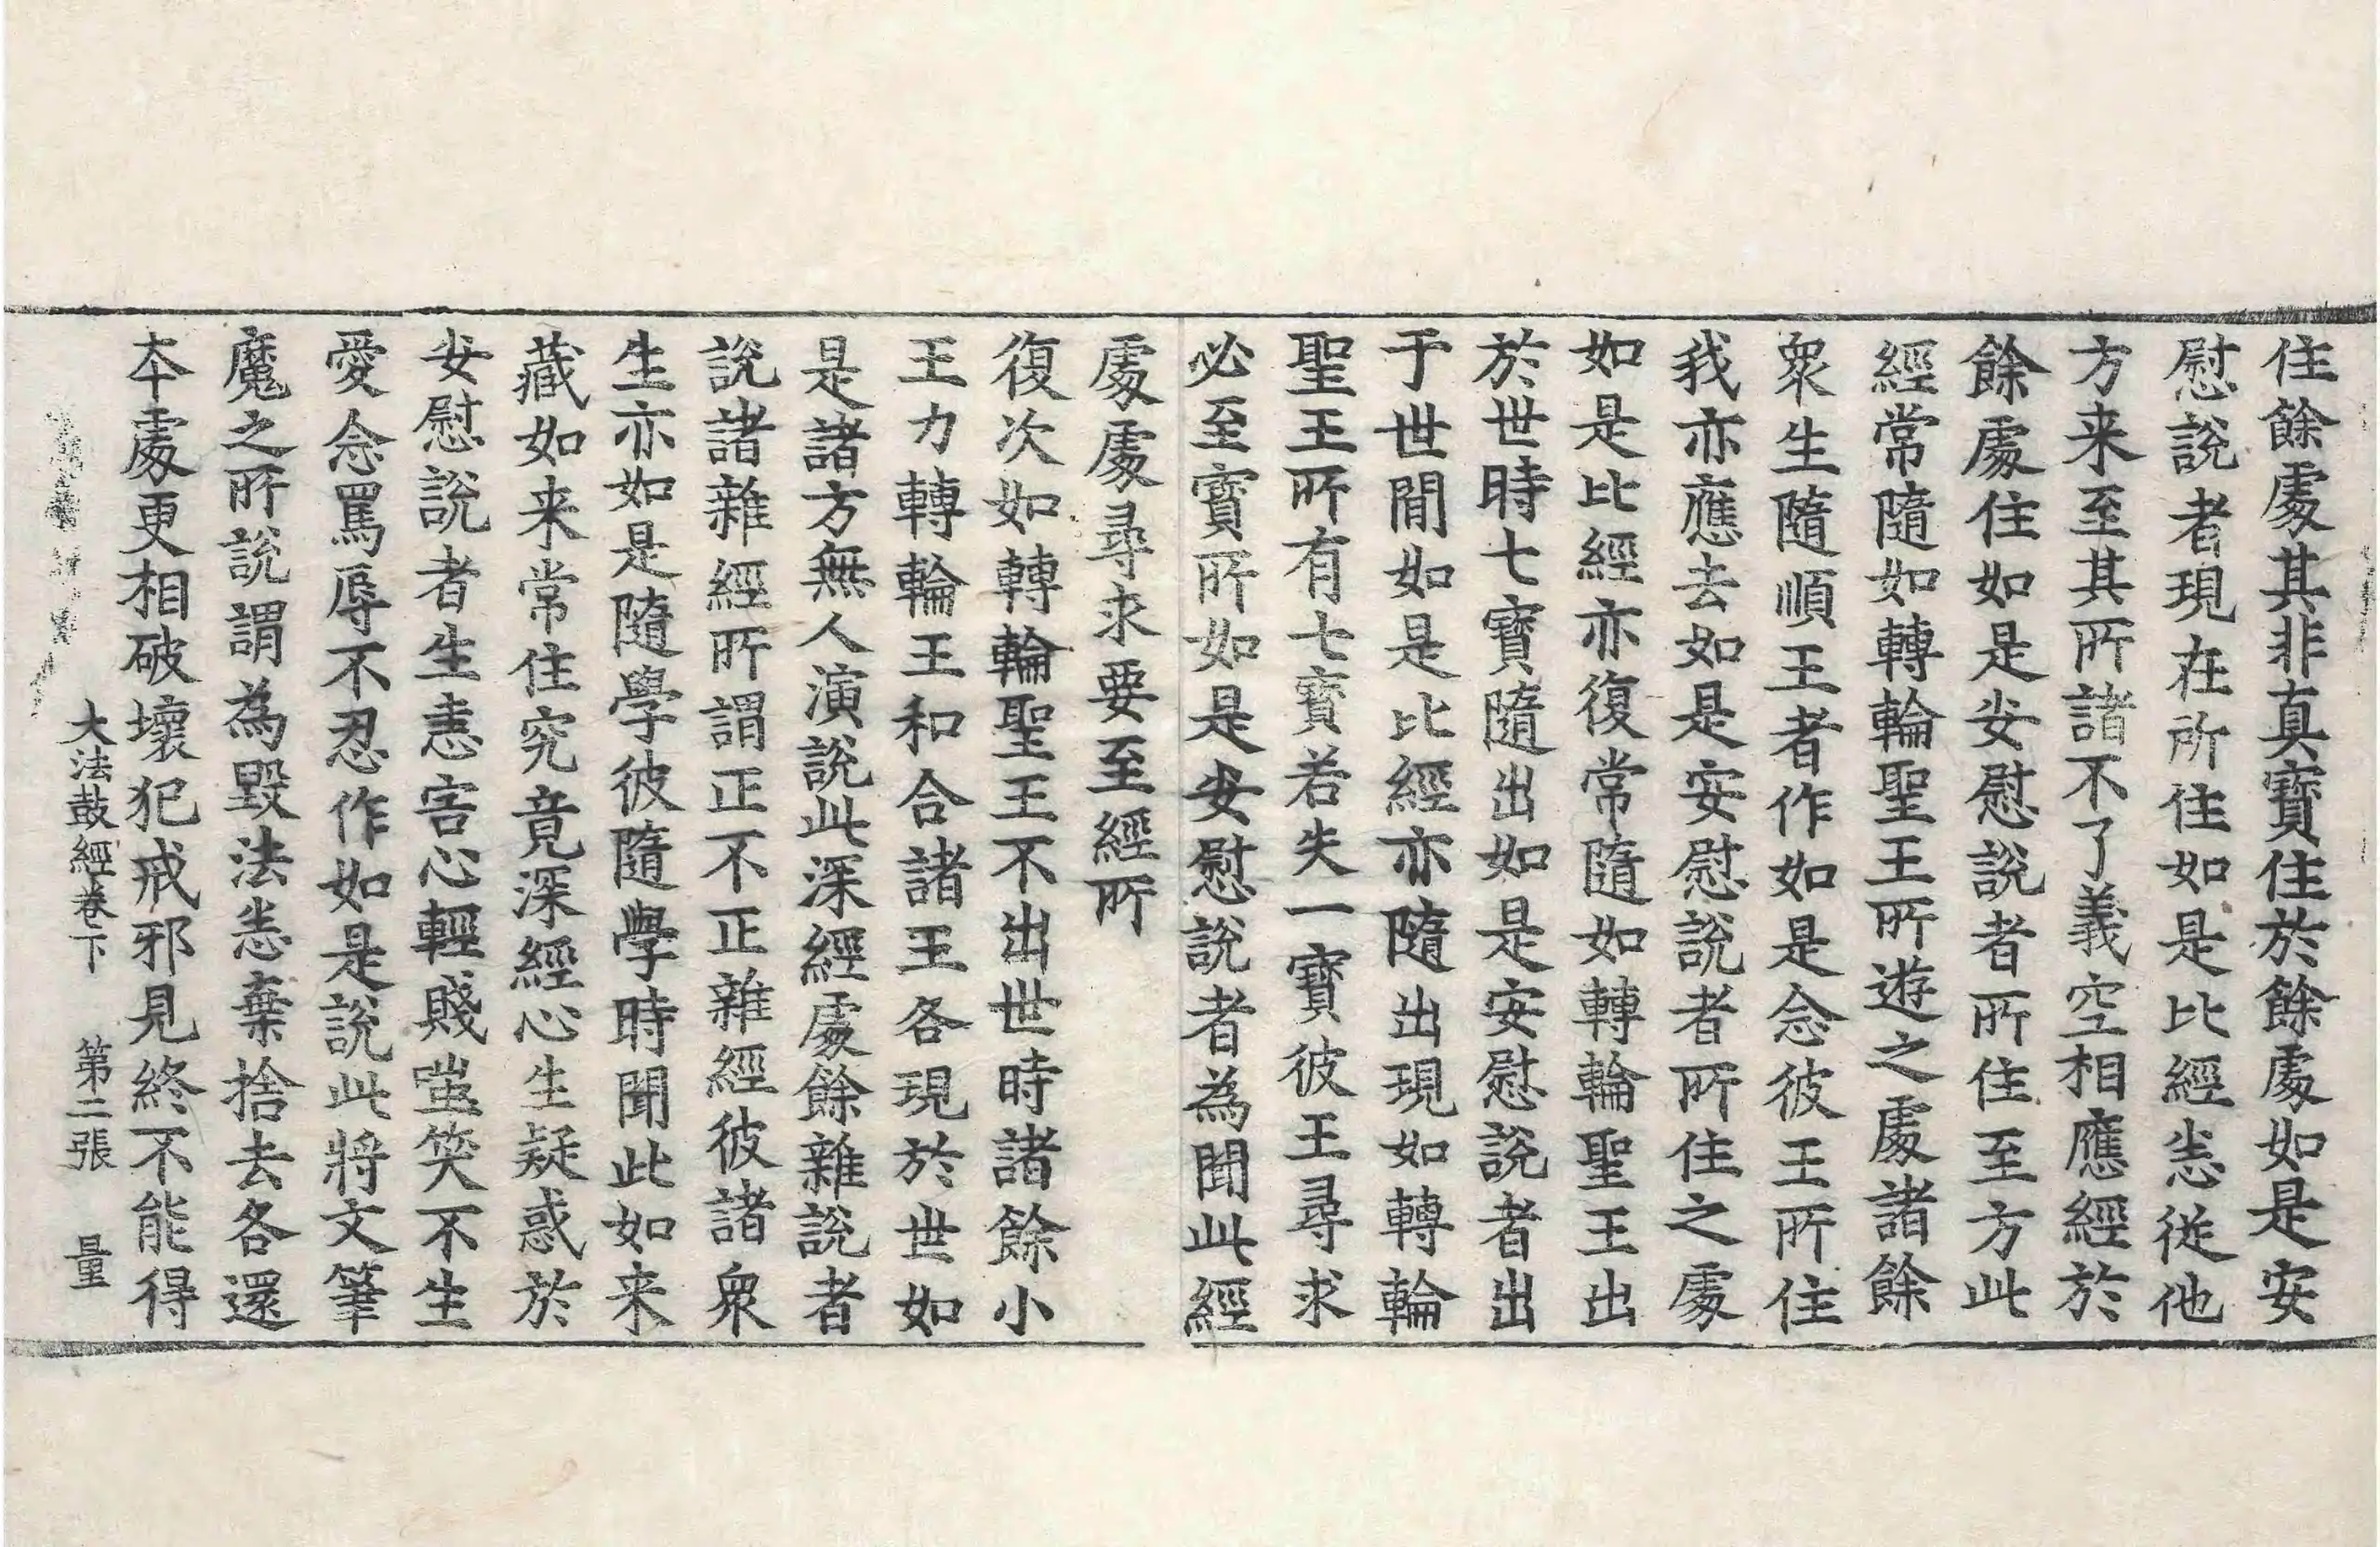 住餘處其非真寶住於餘處如是安
慰說者現在所住如是比經悉從他
方来至其所諸不了義空相應經於
餘處住如是安慰說者所住至方此
經常隨如轉輪聖王所遊之處諸餘
衆生隨順王者作如是念彼王所住
我亦應去如是安慰說者所住之處
如是比經亦復常隨如轉輪聖王出
於世時七寶隨出如是安慰說者出
于世間如是比經亦隨出現如轉輪
聖王所有七寶若失一寶彼王尋求
必至寶所如是安慰說者為聞此經
處處尋求要至經所
復次如轉輪聖王不出世時諸餘小
王力轉輪王和合諸王各現於世如
是諸方無人演說此深經處餘雜說者
說諸雜經所謂正不正雜經彼諸衆
生亦如是隨學彼隨學時聞此如来
藏如来常住究竟深經心生疑惑於
安慰說者生恚害心輕賤嗤笑不生
愛念罵辱不忍作如是說此將文筆
魔之所說謂為毀法悉棄捨去各還
本處更相破壞犯戒邪見終不能得
大法鼓經卷下　第二張　量